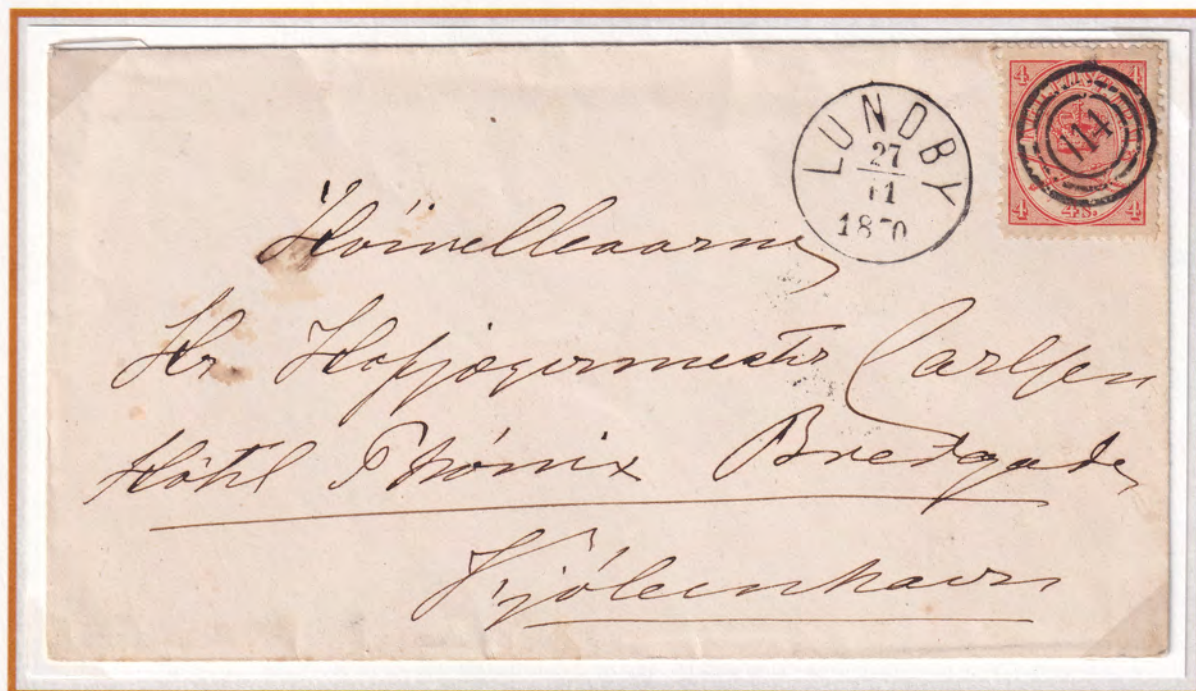 LUNDBY
27
11
1870
4 4
114
4 4S. 4
Høivelbaarne
Hr. Hofjægermester Carlsen
Hôtel Phönix Bredgade
Kjöbenhavn